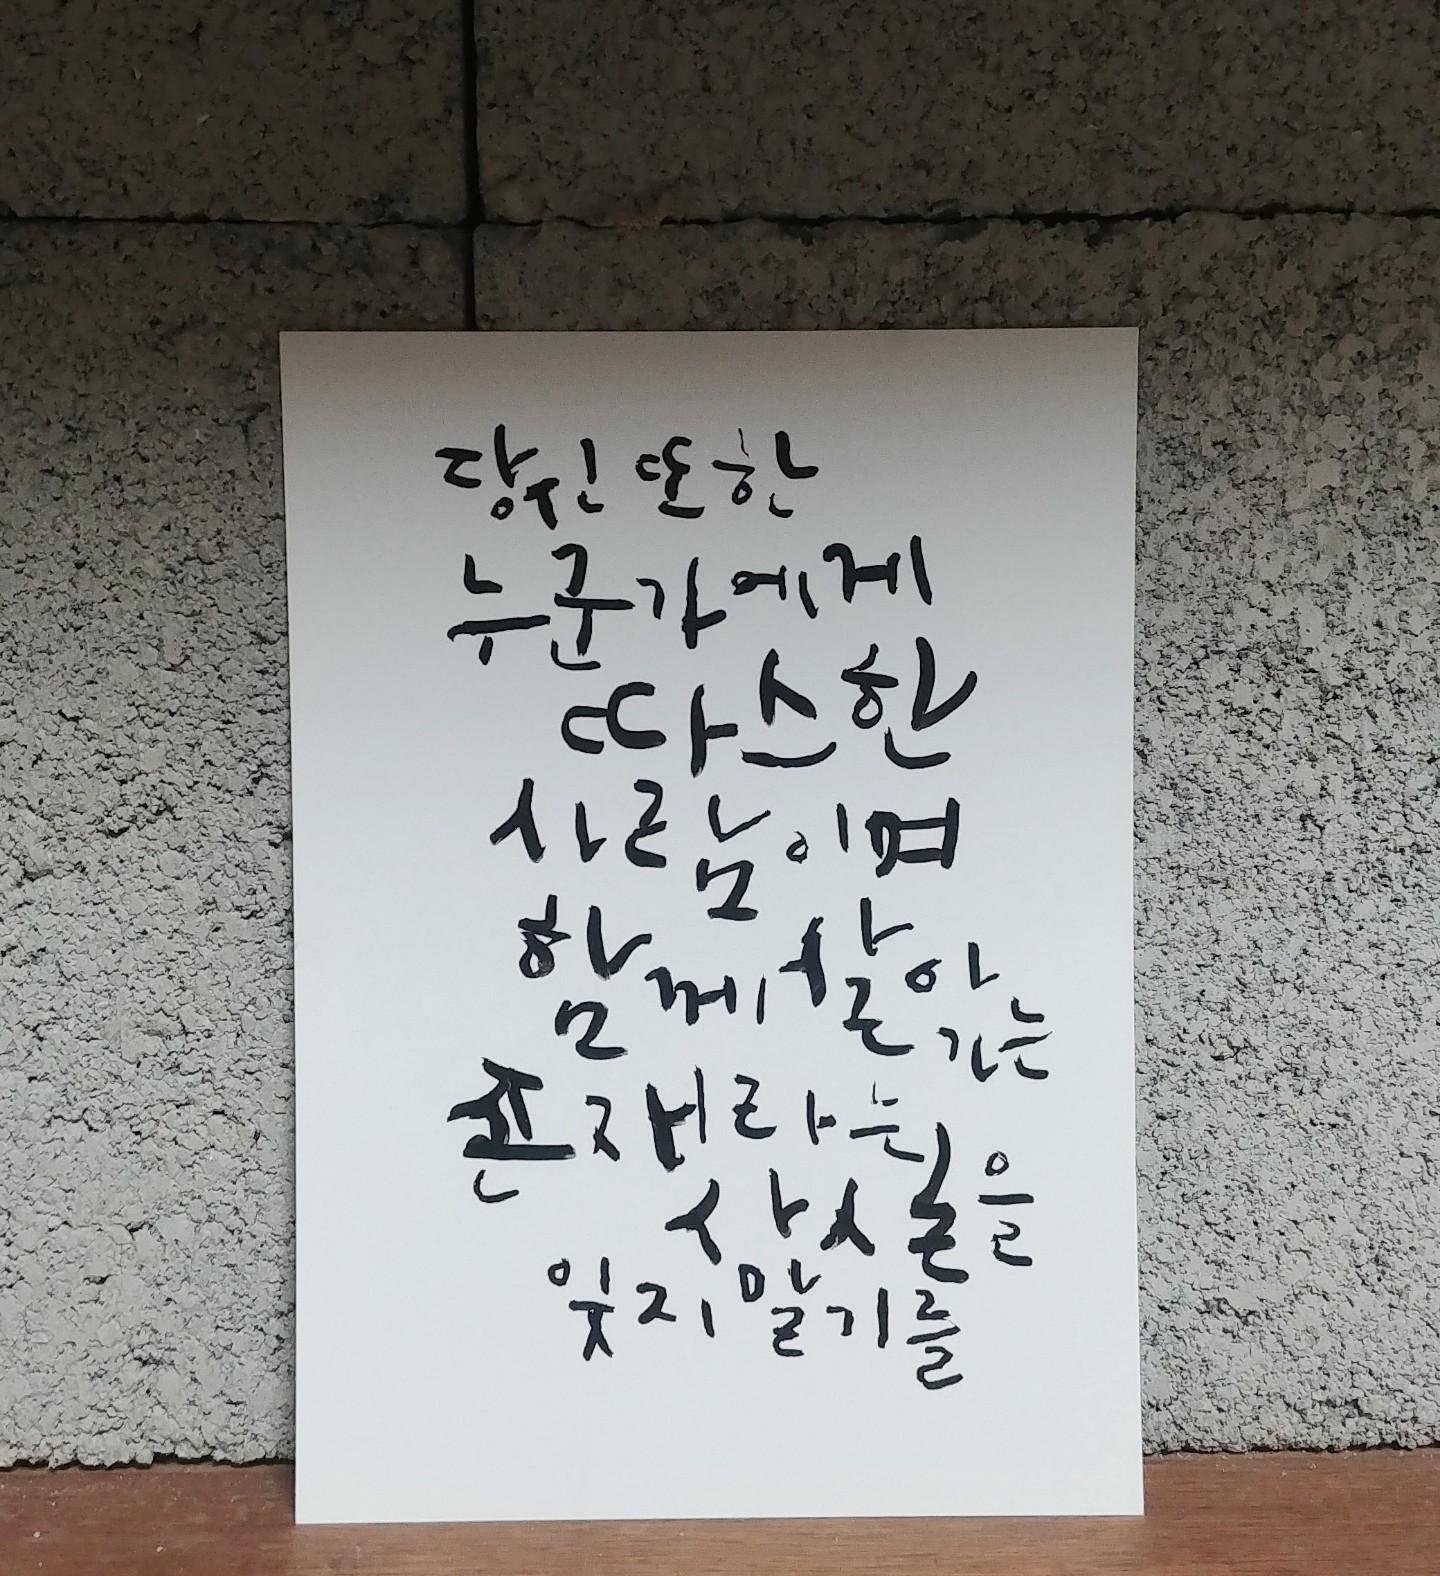 당신 또한
누군가에게
따스한
사람이며
함께 살아가는
존재라는
사실을
잊지 말기를